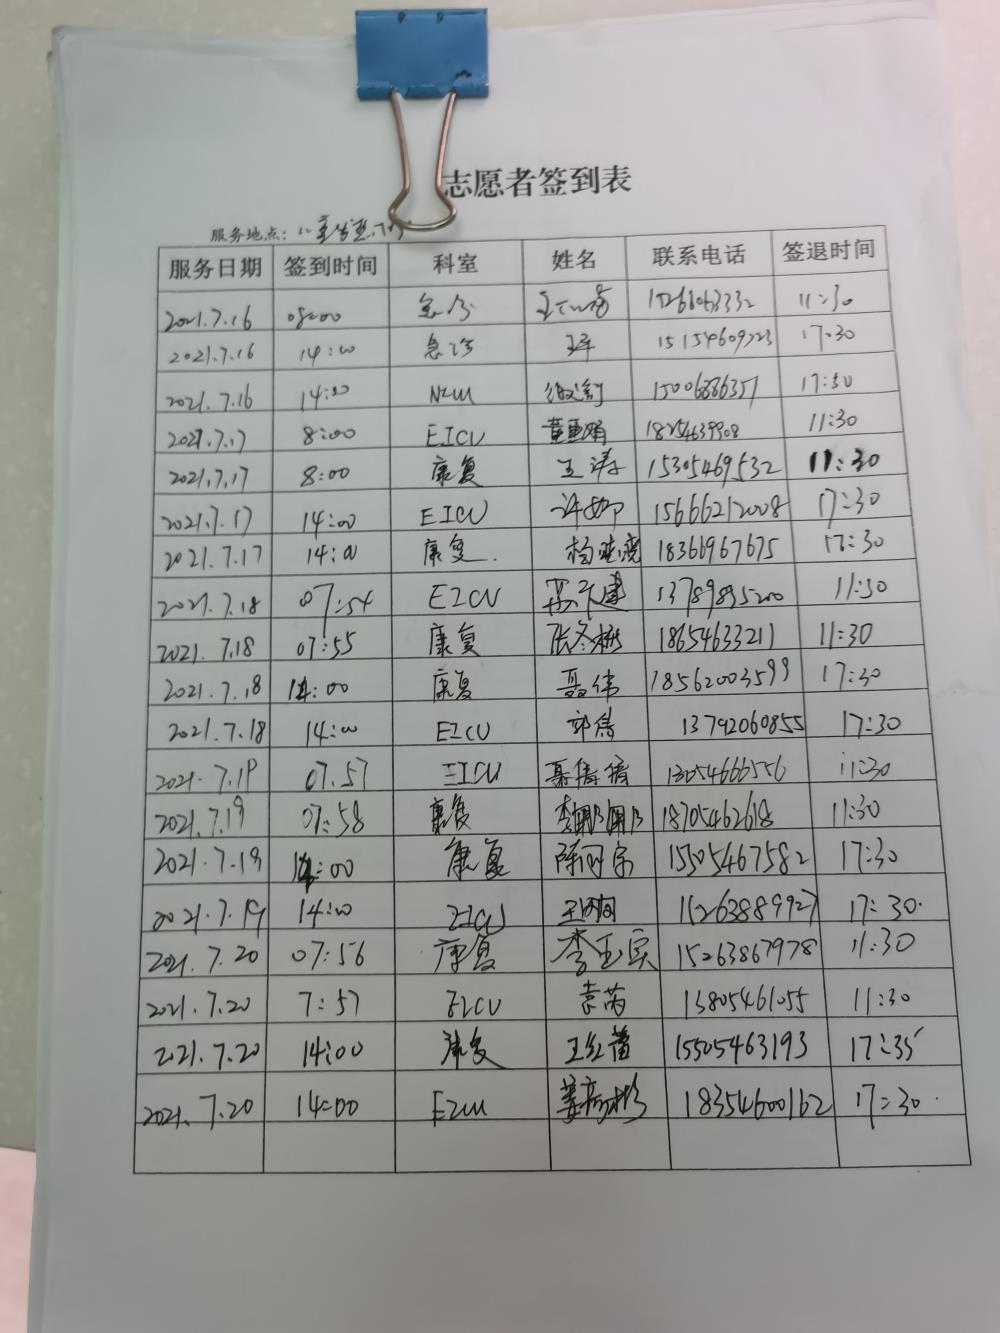 志愿者签到表
服务地点:
服务日期 签到时间 科室 姓名 联系电话 签退时间
2021.7.16 08:00 急诊 15266063332 11:30
2021.7.16 14:00 急诊 15154609723 17:30
2021.7.16 14:00 NICU 15006886357 17:30
2021.7.17 8:00 EICU 18254639908 11:30
2021.7.17 8:00 康复 王涛 15305469532 11:30
2021.7.17 14:00 EICU 15666212008 17:30
2021.7.17 14:00 康复. 18366967675 17:30
2021.7.18 07:54 EICU 13789835200 11:30
2021.7.18 07:55 康复 张冬梅 18654633211 11:30
2021.7.18 14:00 康复 聂伟 18562003599 17:30
2021.7.18 14:00 EICU 郭倩 13792060855 17:30
2021.7.19 07.57 EICU 綦倩倩 13054666556 11:30
2021.7.19 07:58 康复 李娜娜 18705462618 11:30
2021.7.19 14:00 康复 15505467582 17:30
2021.7.19 14:00 EICU 15263889927 17:30.
2021.7.20 07:56 康复 李玉宾 15263867978 11:30
2021.7.20 7:57 EICU 袁芮 13805461055 11:30
2021.7.20 14:00 康复 王红蕾 15505463193 17:35
2021.7.20 14:00 EICU 姜高彬 18354600162 17:30.